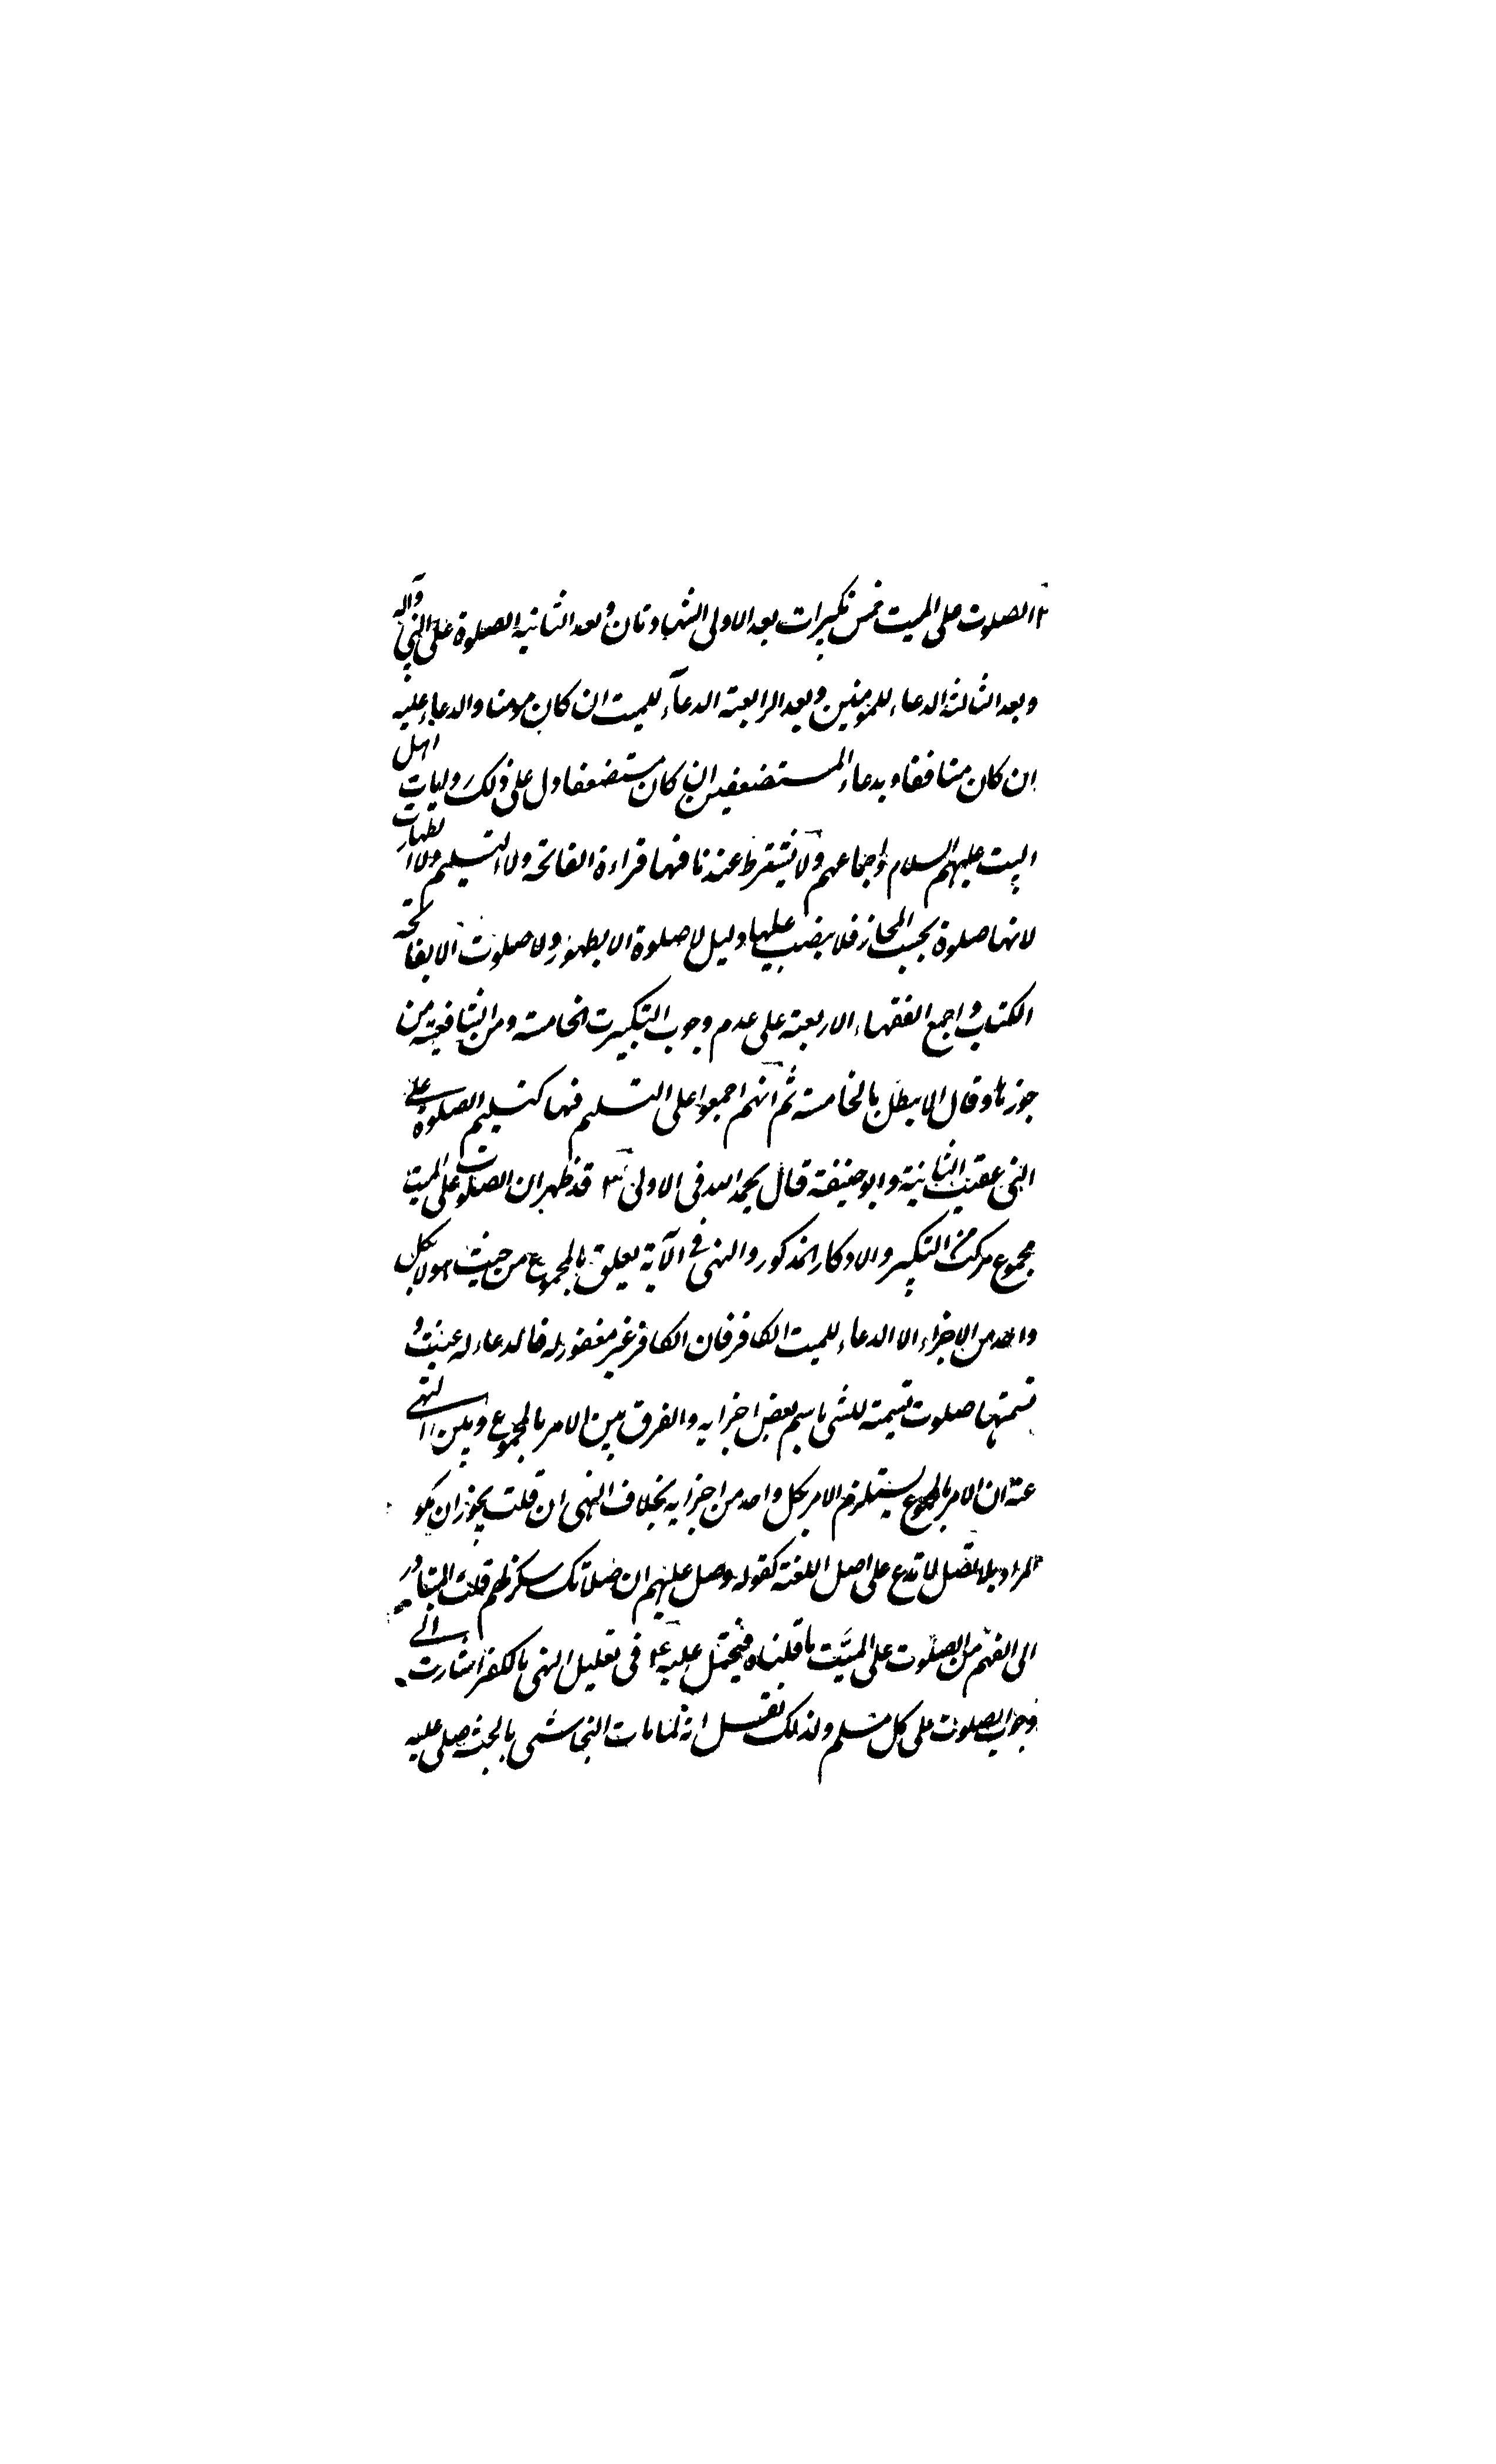 ٢ الصلوت على الميت خمس تكبيرات بعد الاولى الشهادتان وبعد الثانية الصلوة على النبي وآله
وبعد الثالثة الدعاء للمؤمنين وبعد الرابعة الدعآء للميت ان كان مومنا والدعاء عليه
ان كان منافقا وبدعاء المستضعفين ان كان مستضعفا دل على ذلك روايات اهل
البيت عليهم السلام واجماعهم ولا يشترط عندنا فيها قراءة الفاتحة ولا التسليم ولا الطهارت
لانها صلوة بحسب المجاز فلا ينصب عليها دليل لا صلوة الا بطهور ولا صلوت الا بفاتحة
الكتاب واجمع الفقهاء الاربعة على عدم وجوب التكبيرت الخامسة ومن الشافعية من
جوزها وقال لا يبطل بالخامسة ثم انهم اجمعوا على التسليم فيها كتسليم الصلوة على
النبي عقيب الثانية وابو حنيفة قال يحمد الله في الاولى ٣ قد ظهر ان الصلوت على الميت
مجموع مركب من التكبير والاذكار المذكور والنهي في الآية يعلق بالمجموع من حيث هو لا بكل
واحد من الاجزاء الا الدعاء للميت الكافر فان الكافر غير مغفور له فالدعاء له عبث و
تسميتها صلوت تسمية للشي باسم بعض اجزايه والفرق بين الامر بالمجموع وبين النهي
عنه ان الامر بالمجموع يستلزم الامر بكل واحد من اجزايه بخلاف النهي ان قلت يجوز ان يكو
المراد بلا تصل لا تدع على اصل اللغة كقوله وصل عليهم ان صلاتك سكن لهم قلت المتبادر
الى الفهم من الصلوت على الميت ما قلناه فيحمل عليه ٤ في تعليل النهي بالكفر اشارت الى
وجوب الصلوت على كل مسلم ولذلك نقل انه لما مات النجاشي بالحبشة صلى عليه